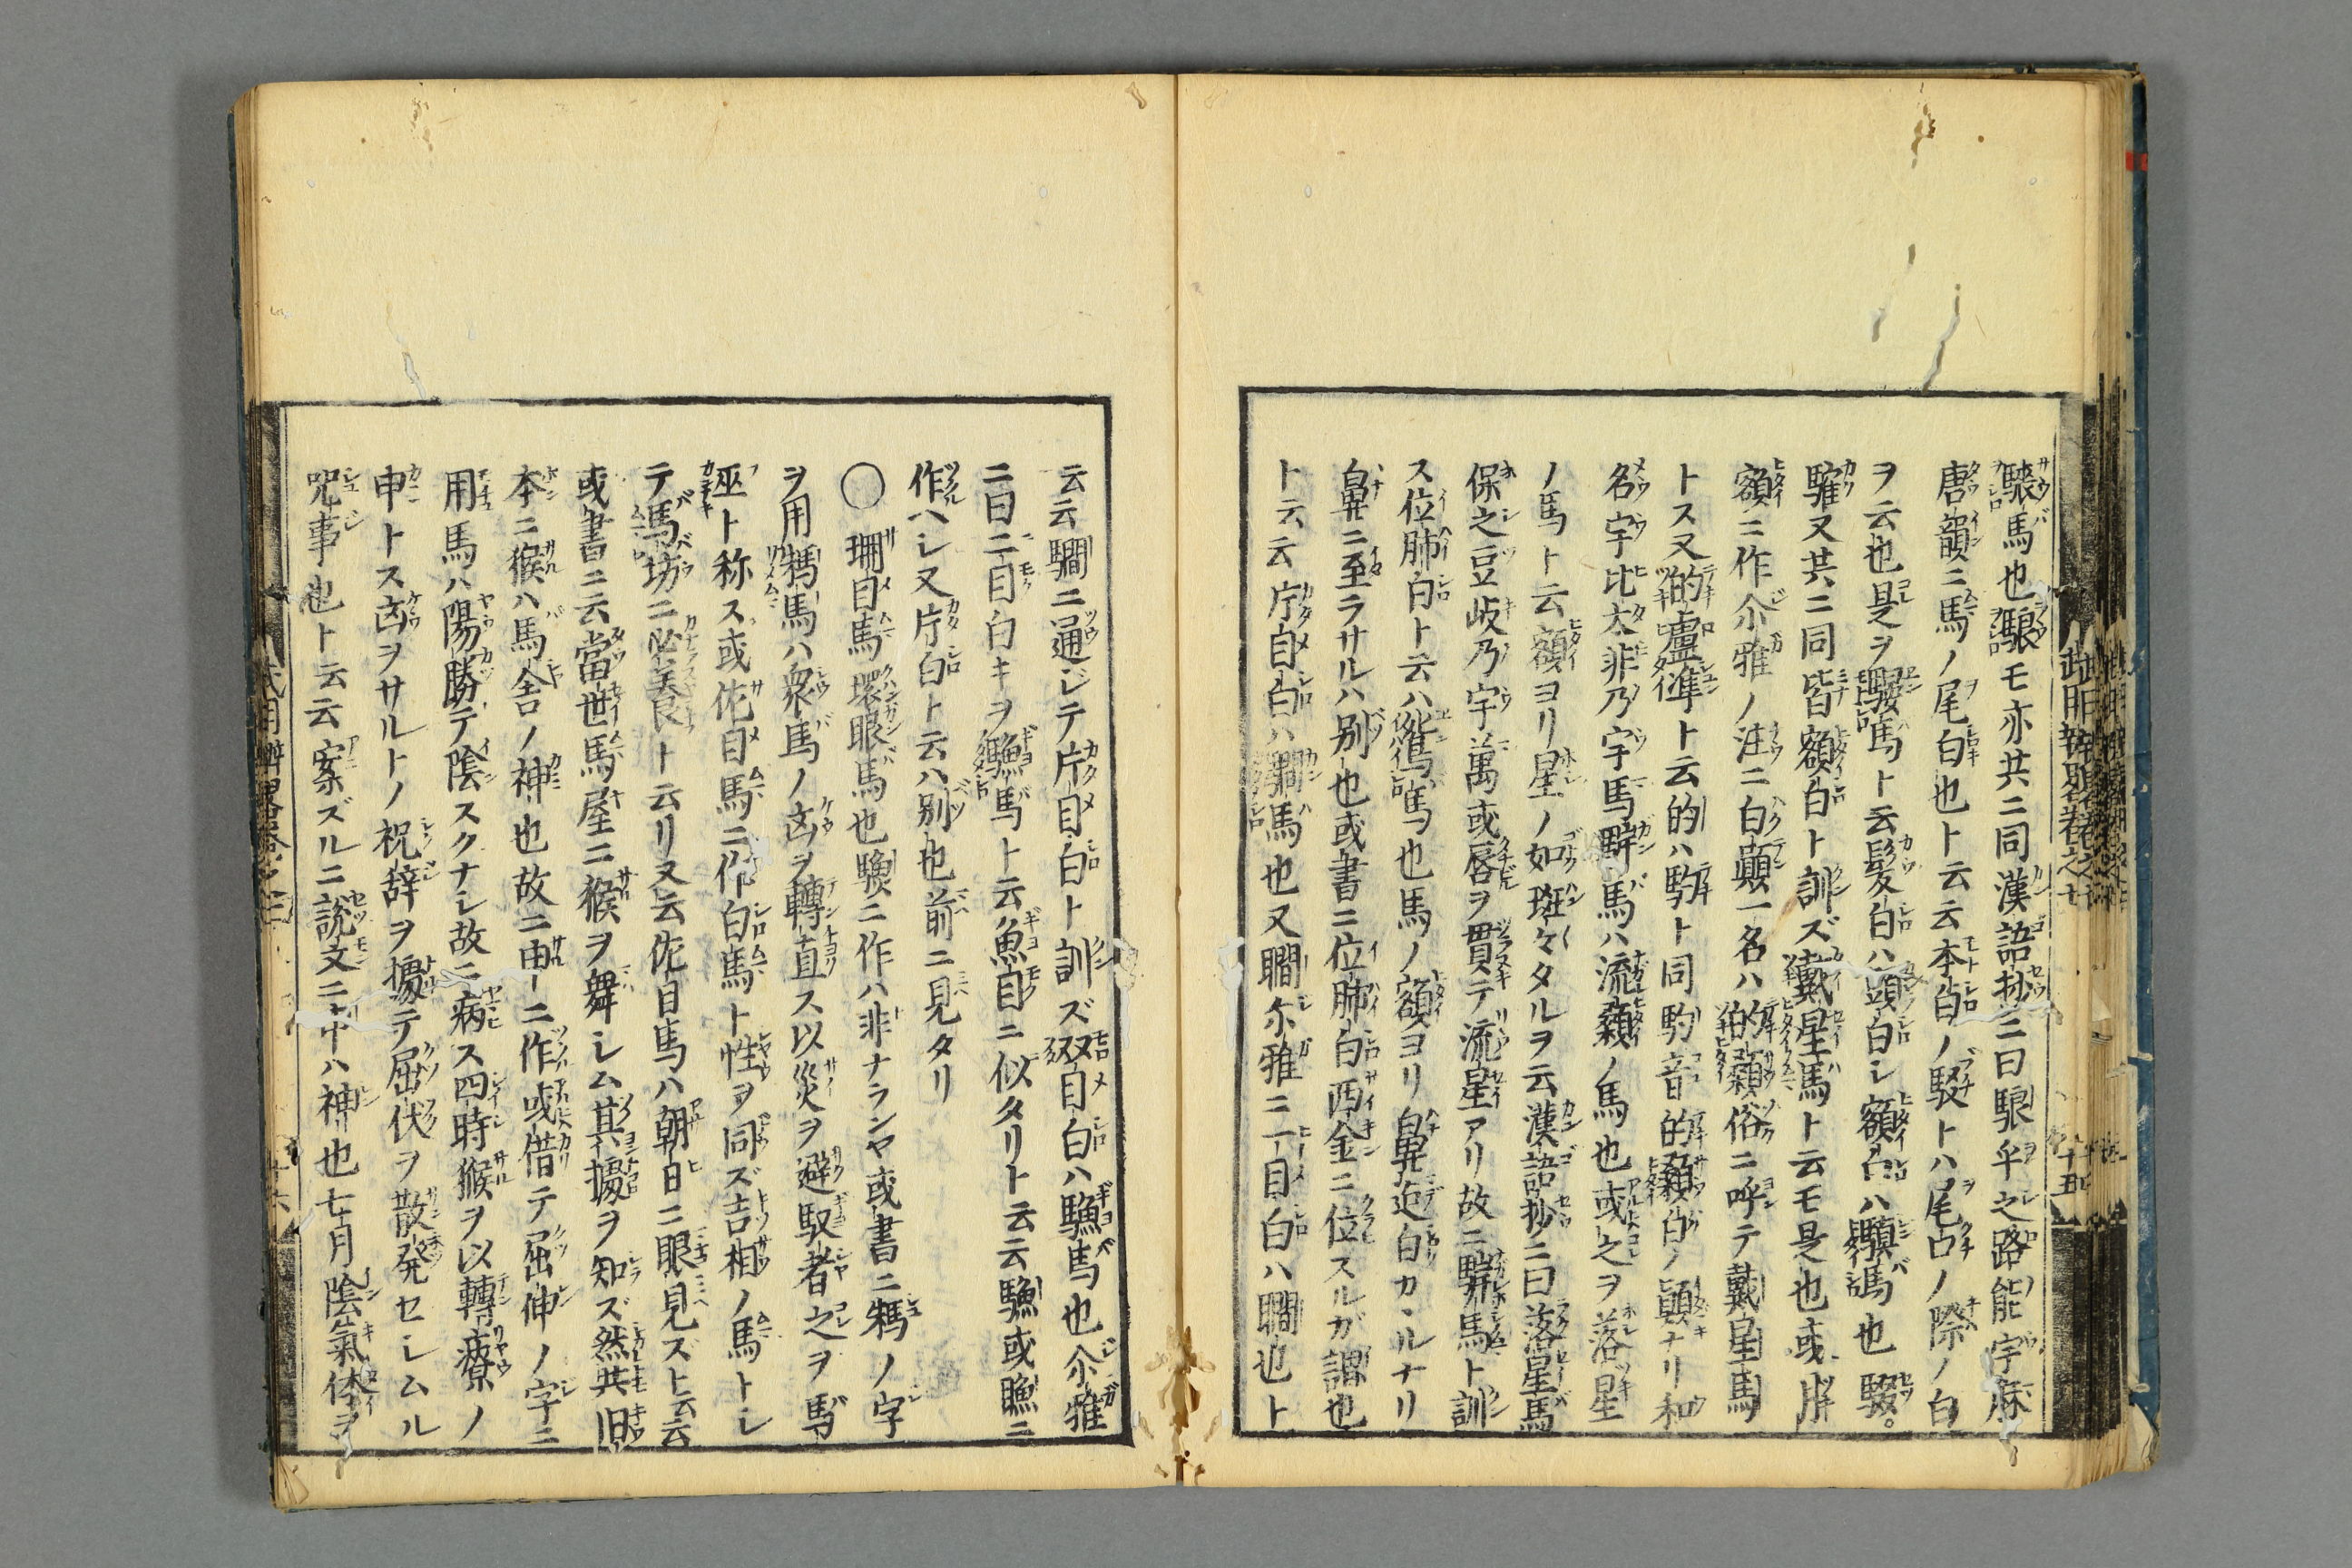 馬也騴モ亦共ニ同漢語抄ニ曰騴乎之路能宇麻
唐韻ニ馬ノ尾白也ト云云本白ノ駁トハ尾占ノ際ノ白
ヲ云也是ヲ馬ト云髪白ハ頭白シ額白ハ馬也
騅又共ニ同皆額白ト訓ズ戴星馬ト云モ是也或
額ニ作尒雅ノ注ニ白顛一名ハ的顙俗ニ呼テ戴星馬
トス又的盧ト云的ハ馰ト同馰音的顙白ノ顛ナリ和
名宇比太非乃宇馬馬ハ流顙ノ馬也或之ヲ落星
ノ馬ト云額ヨリ星ノ如斑々タルヲ云漢語抄ニ曰落星馬
保之豆岐乃宇萬或唇ヲ貫テ流星アリ故ニ馬ト訓
ス位肺白ト云ハ馬也馬ノ額ヨリ鼻迄白カヽルナリ
鼻ニ至ラサルハ別也或書ニ位肺白西金ニ位スルガ謂也
ト云云片目白ハ瞯馬也又瞯尒雅ニ一目白ハ瞯也ト
云云瞯ニ通ジテ片目白ト訓ズ双目白ハ䱷馬也尒雅
ニ曰二目白キヲ馬ト云魚目ニ似タリト云云或ニ
作ヘシ又片白ト云ハ別也前ニ見タリ
〇 珊目馬環眼馬也ニ作ハ非ナランヤ或書ニノ字
ヲ用馬ハ衆馬ノ凶ヲ轉直ス以災ヲ避馭者之ヲ馬
巫ト称ス或佐目馬ニ作白馬ト性ヲ同ズ吉相ノ馬トシ
テ馬坊ニ必養良ト云リ又云佐目馬ハ朝日ニ眼見ズト云云
或書ニ云當世馬屋ニ猴ヲ舞シム其據ヲ知ズ然共旧
本ニ猴ハ馬舎ノ神也故ニ申ニ作或借テ屈伸ノ字ニ
用馬ハ陽勝テ陰スクナシ故ニ病ス四時猴ヲ以轉療ノ
申トス凶ヲサルトノ祝辞ヲ據テ屈伏ヲ散発セシムル
咒事也ト云云案ズルニ説文ニ申ハ神也七月陰氣体ヲ